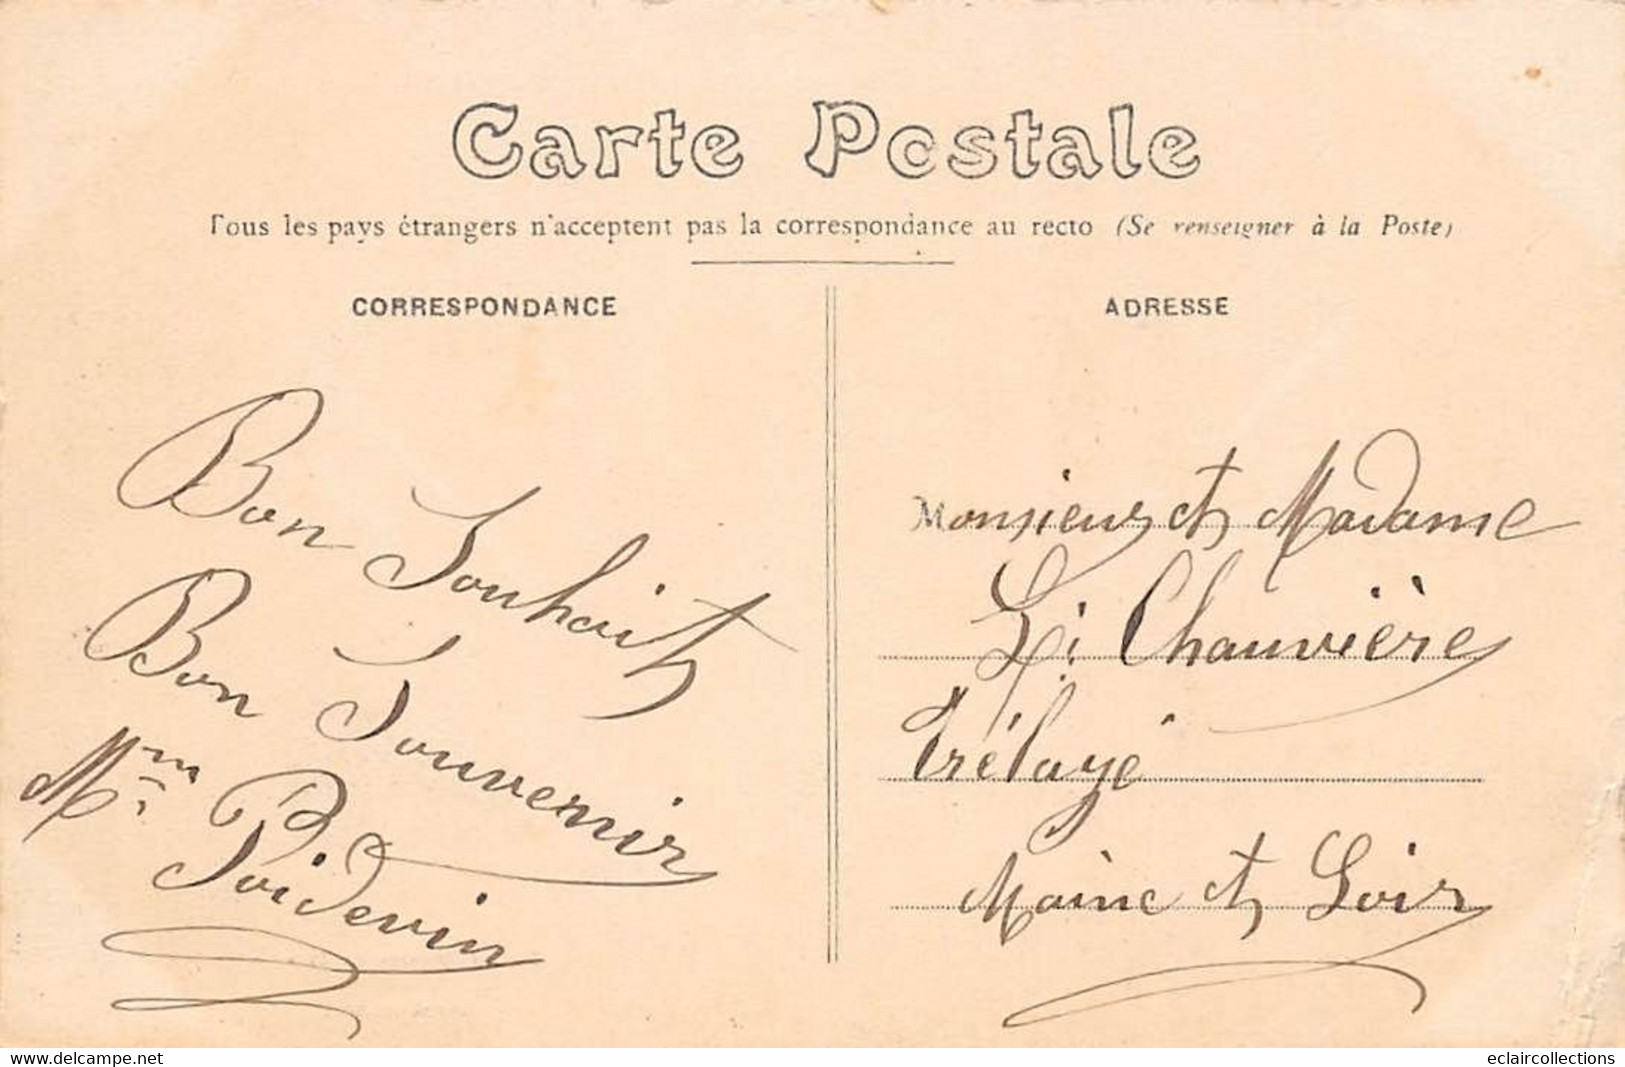 Carte Postale
Tous les pays étrangers n'acceptent pas la correspondance au recto (Se renseigner à la Poste)
CORRESPONDANCE
Bon Souhait
Bon Souvenir
Mme Poidevin
ADRESSE
Monsieur et Madame
L. Chauvière
Trélazé
Maine et Loir
www.delcampe.net
eclaircollections